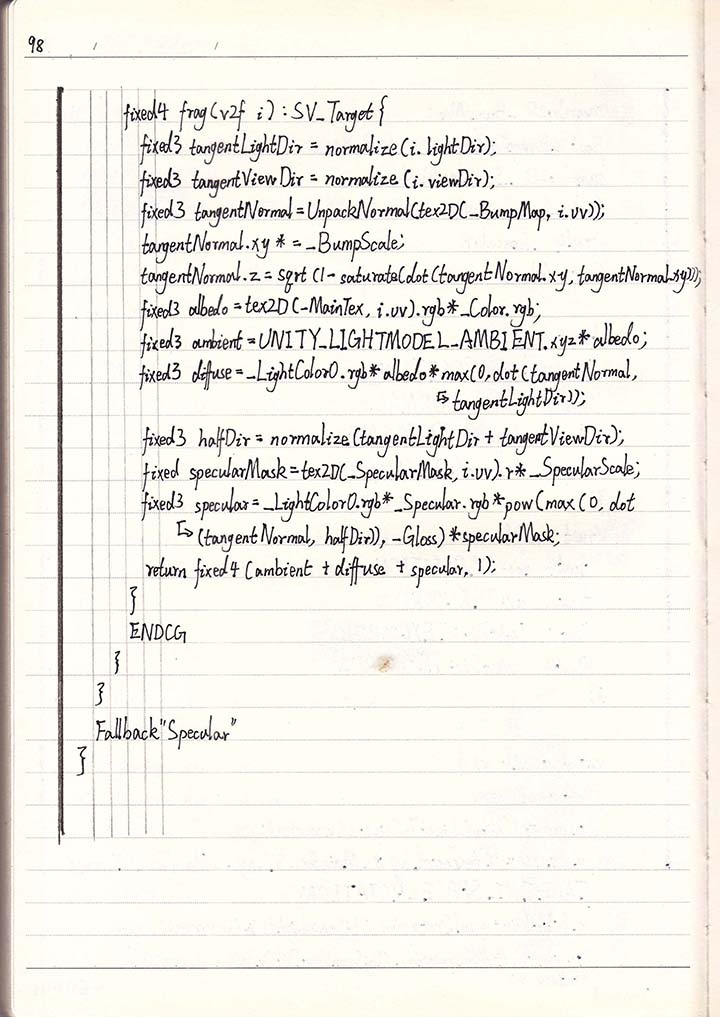 98
fixed4 frag(v2f i) : SV_Target{
fixed3 tangentLightDir = normalize(i.lightDir);
fixed3 tangentViewDir = normalize(i.viewDir);
fixed3 tangentNormal = UnpackNormal(tex2D(_BumpMap, i.uv));
tangentNormal.xy *= _BumpScale;
tangentNormal.z = sqrt(1- saturate(dot(tangentNormal.xy, tangentNormal.xy)));
fixed3 albedo = tex2D(_MainTex, i.uv).rgb*_Color.rgb;
fixed3 ambient = UNITY_LIGHTMODEL_AMBIENT.xyz* albedo;
fixed3 diffuse = _LightColor0.rgb* albedo* max(0, dot(tangentNormal,
↳ tangentLightDir));
fixed3 halfDir = normalize(tangentLightDir + tangentViewDir);
fixed specularMask = tex2D(_SpecularMask, i.uv).r* _SpecularScale;
fixed3 specular = _LightColor0.rgb* _Specular.rgb* pow(max(0, dot
↳ (tangentNormal, halfDir)), _Gloss) * specularMask;
return fixed4(ambient + diffuse + specular, 1);
}
ENDCG
}
}
Fallback"Specular"
}